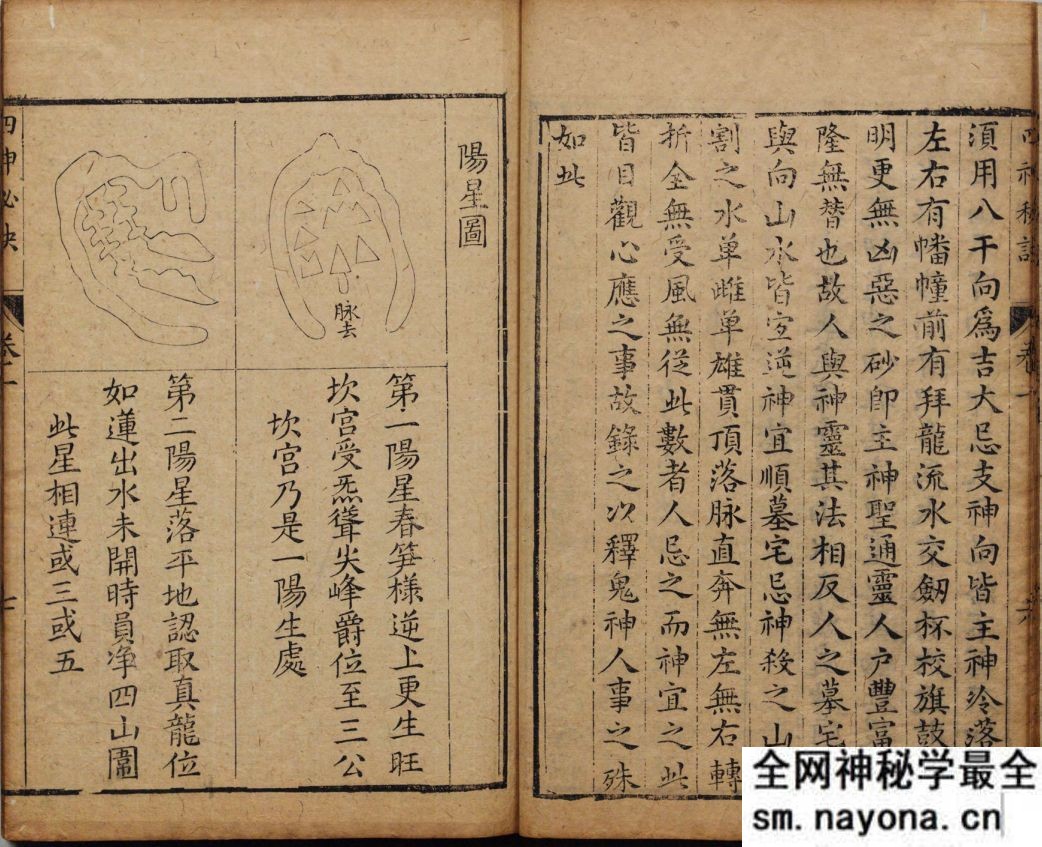 須用八干向為吉大忌支神向皆主神冷落
左右有幡幢前有拜龍流水交劔杯校旗鼓
明更無凶惡之砂卽主神聖通靈人户豐富
隆無替也故人與神靈其法相反人之墓宅
與向山水皆宜逆神宜順墓宅忌神殺之山
割之水单雌单雄貫頂落脉直奔無左無右轉
折全無受風無從此數者人忌之而神宜之此
皆目觀心應之事故錄之次釋鬼神人事之殊
如此
陽星圖
脉去
第一陽星春笋様逆上更生旺
坎宫受炁聳尖峰爵位至三公
坎宫乃是一陽生處
第二陽星落平地認取真龍位
如蓮出水未開時員净四山圍
此星相連或三或五
四神秘訣
卷一
七
全网神秘学最全
sm.nayona.cn